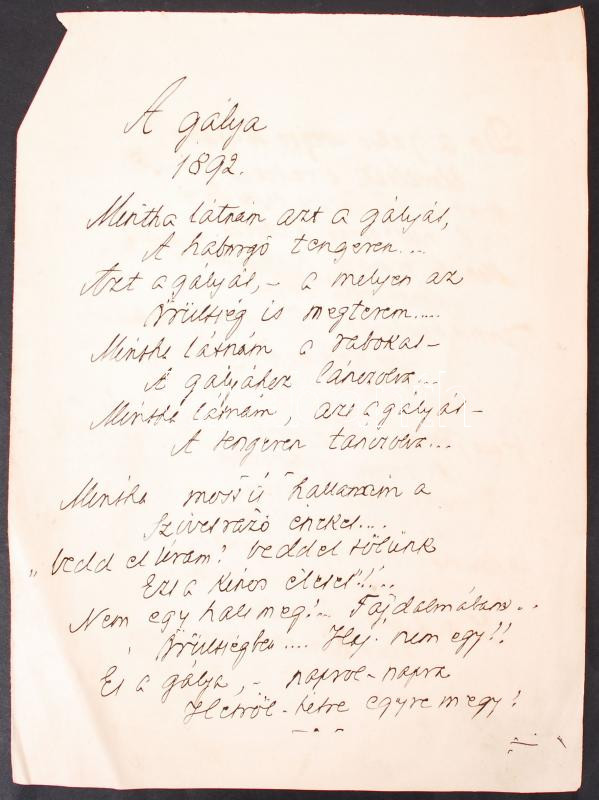 A gálya
1892.
Mintha látnám azt a gályát,
A háborgó tengeren....
Azt a gályát, – a melyen az
Őrültség is megterem.....
Mintha látnám a rabokat –
A gályához lánczolva...
Mintha látnám, azt a gályát –
A tengeren tánczolva...
Mintha most is hallanám a
Szívetrázó éneket....
„vedd el Uram! vedd el tőlünk
Ezt a kínos életet"!!....
Nem egy halt meg!.. Fájdalmában..
Őrültségbe.... Haj. nem egy!!
És a gálya, – napról-napra
Hétről-hétre egyre megy!